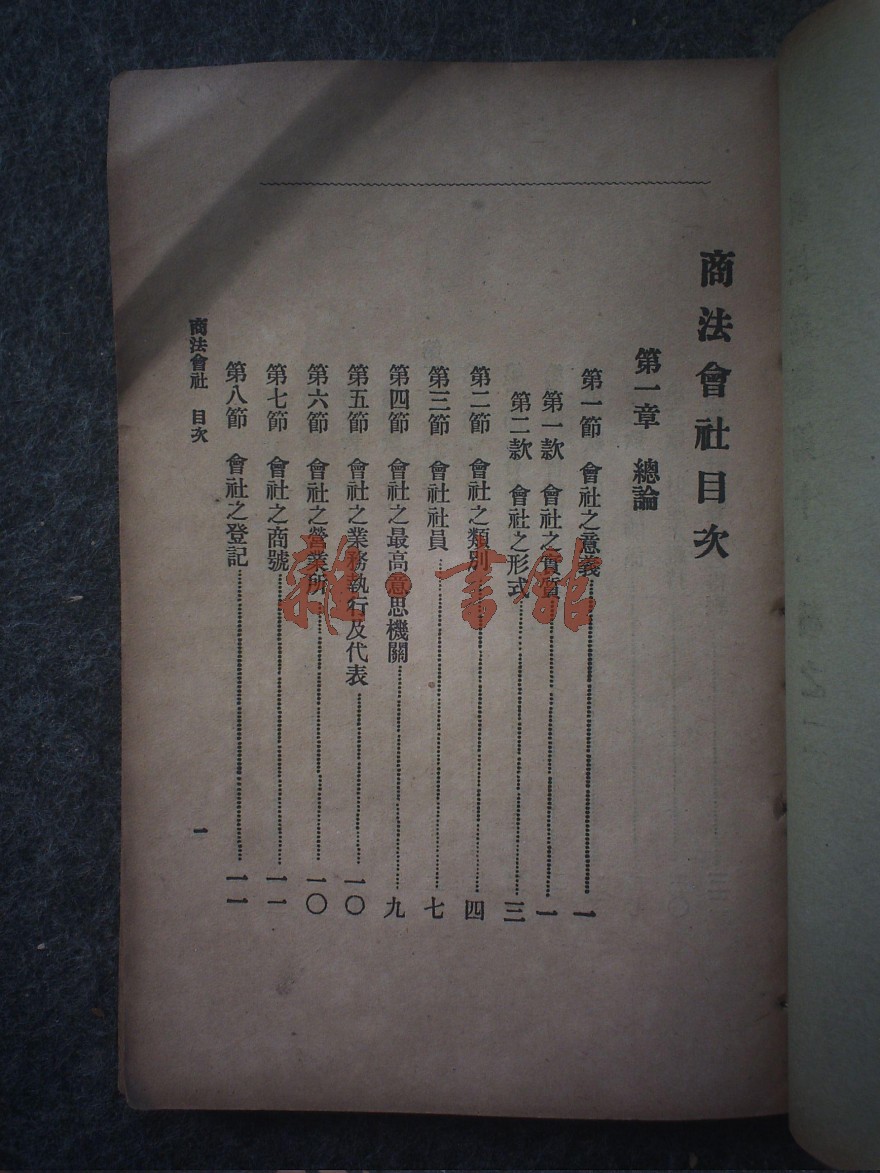 商法會社目次
第一章 總論
第一節 會社之意義 一
第一款 會社之實質 一
第二款 會社之形式 三
第二節 會社之類別 四
第三節 會社社員 七
第四節 會社之最高意思機關 九
第五節 會社之業務執行及代表 一〇
第六節 會社之營業所 一〇
第七節 會社之商號 一一
第八節 會社之登記 一一
商法會社 目次
一
雜·書館